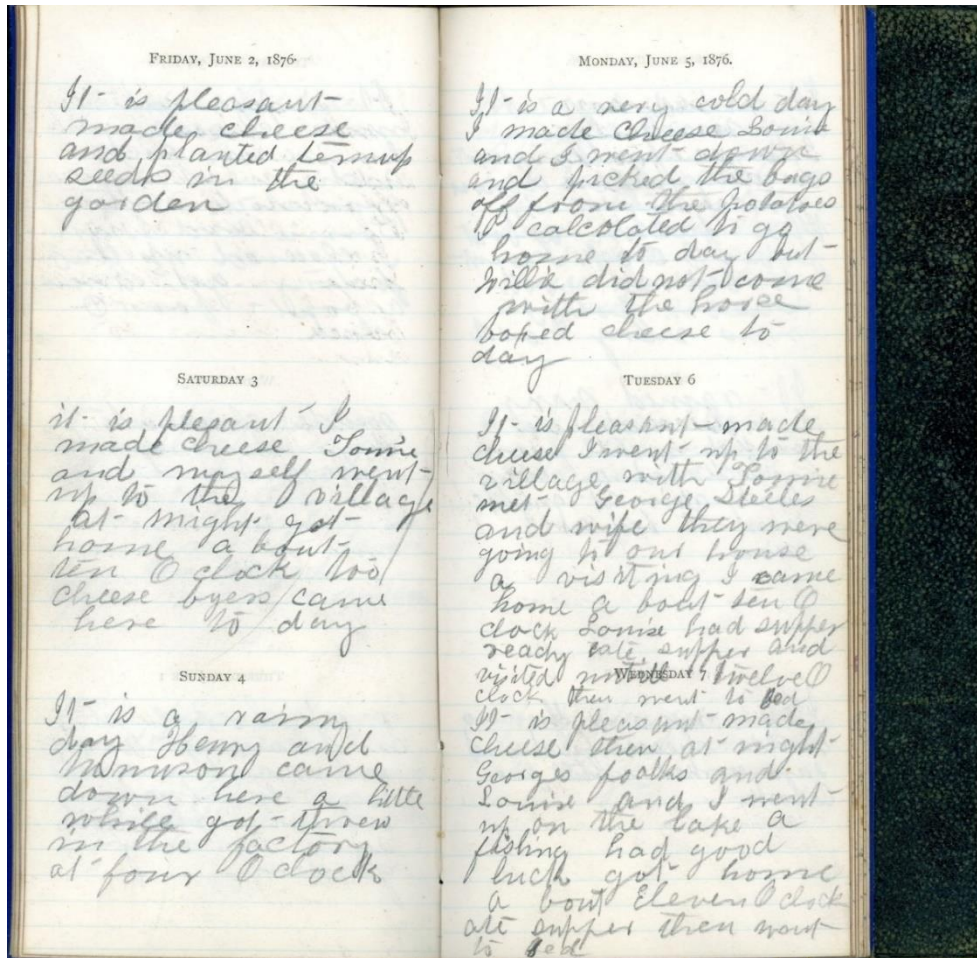 FRIDAY, JUNE 2, 1876.
It is pleasant
made cheese
and planted ternup
seeds in the
garden
SATURDAY 3
it is plesant I
made cheese
and mayself went
up to the village
at night got
home a bout
ten O clock too
cheese byers came
here to day
SUNDAY 4
It is a rainy
day Henry and
came
down here a little
while got threw
in the factory
at four O clock
MONDAY, JUNE 5, 1876.
It is a very cold day
I made cheese Louise
and I went down
and picked the bugs
off from the potatoes
I calcolated to go
home to day but
Willie did not come
with the horse
boxed cheese to
day
TUESDAY 6
It is pleasant made
cheese I went up to the
village with
met George Steeles
and wife they were
going to our house
a visiting I came
home a bout ten O
clock Louise had supper
ready ate supper and
visited untill twelve O
clock then went to bed
WEDNESDAY 7
It is pleasant made
cheese then at night
Georges foolks and
Louise and I went
up on the lake a
fishing had good
luck got home
a bout Eleven O clock
ate supper then went
to bed